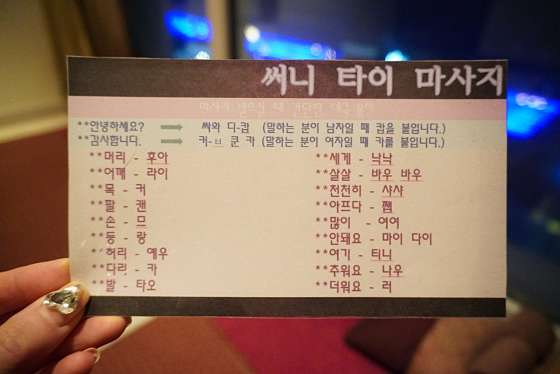 써니 타이 마사지
**안녕하세요? ➡ 싸와 디-캅 (말하는 분이 남자일 때 캅을 붙입니다.)
**감사합니다. ➡ 커-ㅂ 쿤 카 (말하는 분이 여자일 때 카를 붙입니다.)
**머리 - 후아
**어깨 - 라이
**목 - 커
**팔 - 캔
**손 - 므
**등 - 랑
**허리 - 에우
**다리 - 카
**발 - 타오
**세게 - 낙낙
**살살 - 바우 바우
**천천히 - 샤샤
**아프다 - 쩹
**많이 - 여여
**안돼요 - 마이 다이
**여기 - 티니
**추워요 - 나우
**더워요 - 러